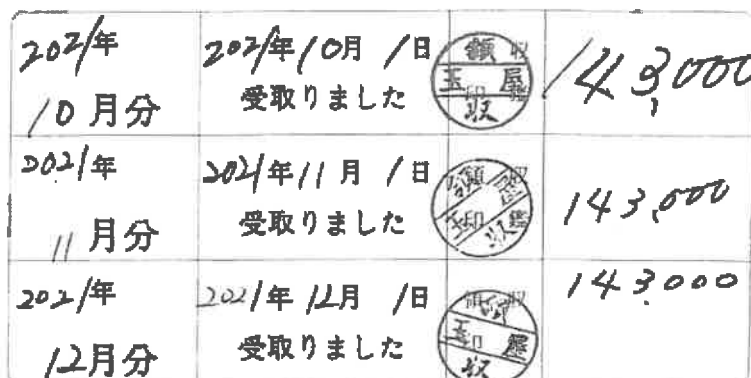 2021年
10月分
2021年10月1日
受取りました
領収
玉屋
印鑑
収
143,000
2021年
11月分
2021年11月1日
受取りました
領収
玉屋
印鑑
収
143,000
2021年
12月分
2021年12月1日
受取りました
領収
玉屋
印
収
143,000